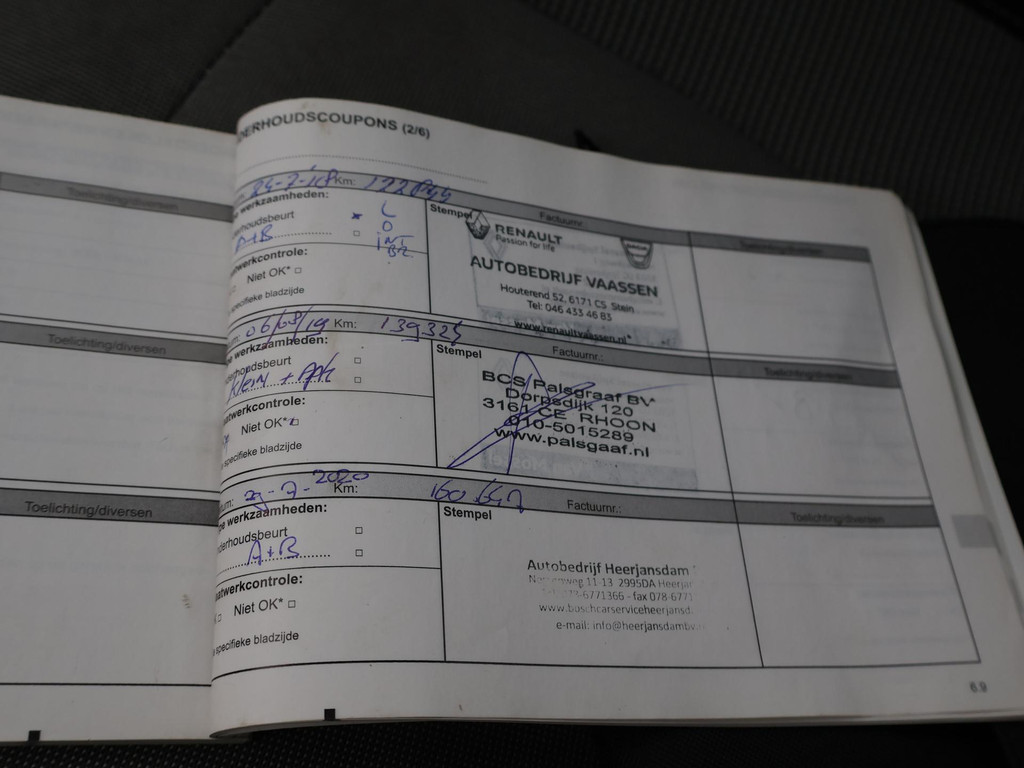 Toelichting/diversen
Toelichting/diversen
Toelichting/diversen
DERHOUDSCOUPONS (2/6)
24-7-18 Km:
Factuurnr.:
Toelichting/diversen
werkzaamheden:
derhoudsbeurt
A+B
Niet OK*
specifieke bladzijde
Stempel
RENAULT
Passion for life
DACIA
AUTOBEDRIJF VAASSEN
Houterend 52, 6171 CS Stein
Tel: 046 433 46 83
www.renaultvaassen.nl
06/08/19 Km: 139325
Factuurnr.:
Toelichting/diversen
werkzaamheden:
derhoudsbeurt
Klein + APK
atwerkcontrole:
Niet OK*
specifieke bladzijde
Stempel
BCS Palsgraaf BV
Dorpsdijk 120
3161 CE RHOON
010-5015289
www.palsgaaf.nl
um: 29-7-2020 Km:
Factuurnr.:
Toelichting/diversen
e werkzaamheden:
derhoudsbeurt
A+B
atwerkcontrole:
Niet OK*
specifieke bladzijde
Stempel
Autobedrijf Heerjansdam
weg 11-13 2995DA Heerjan
6771366 - fax 078-6771
www.boschcarserviceheerjansd
e-mail: info@heerjansdambv.
6.9